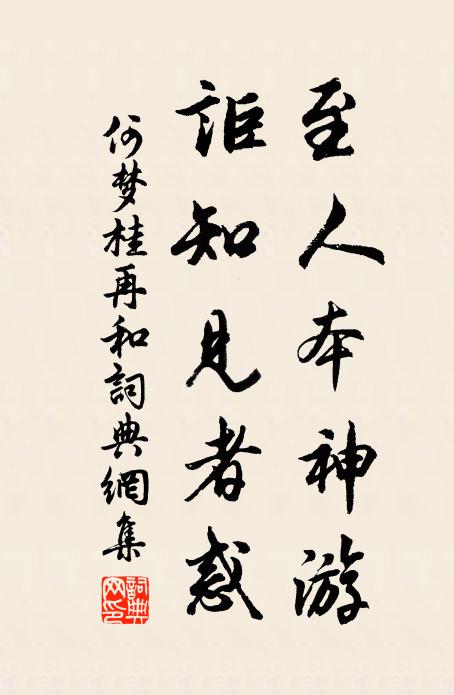 至人本神游
詎知見者惑
何梦桂再和詞典網集
詞典网印